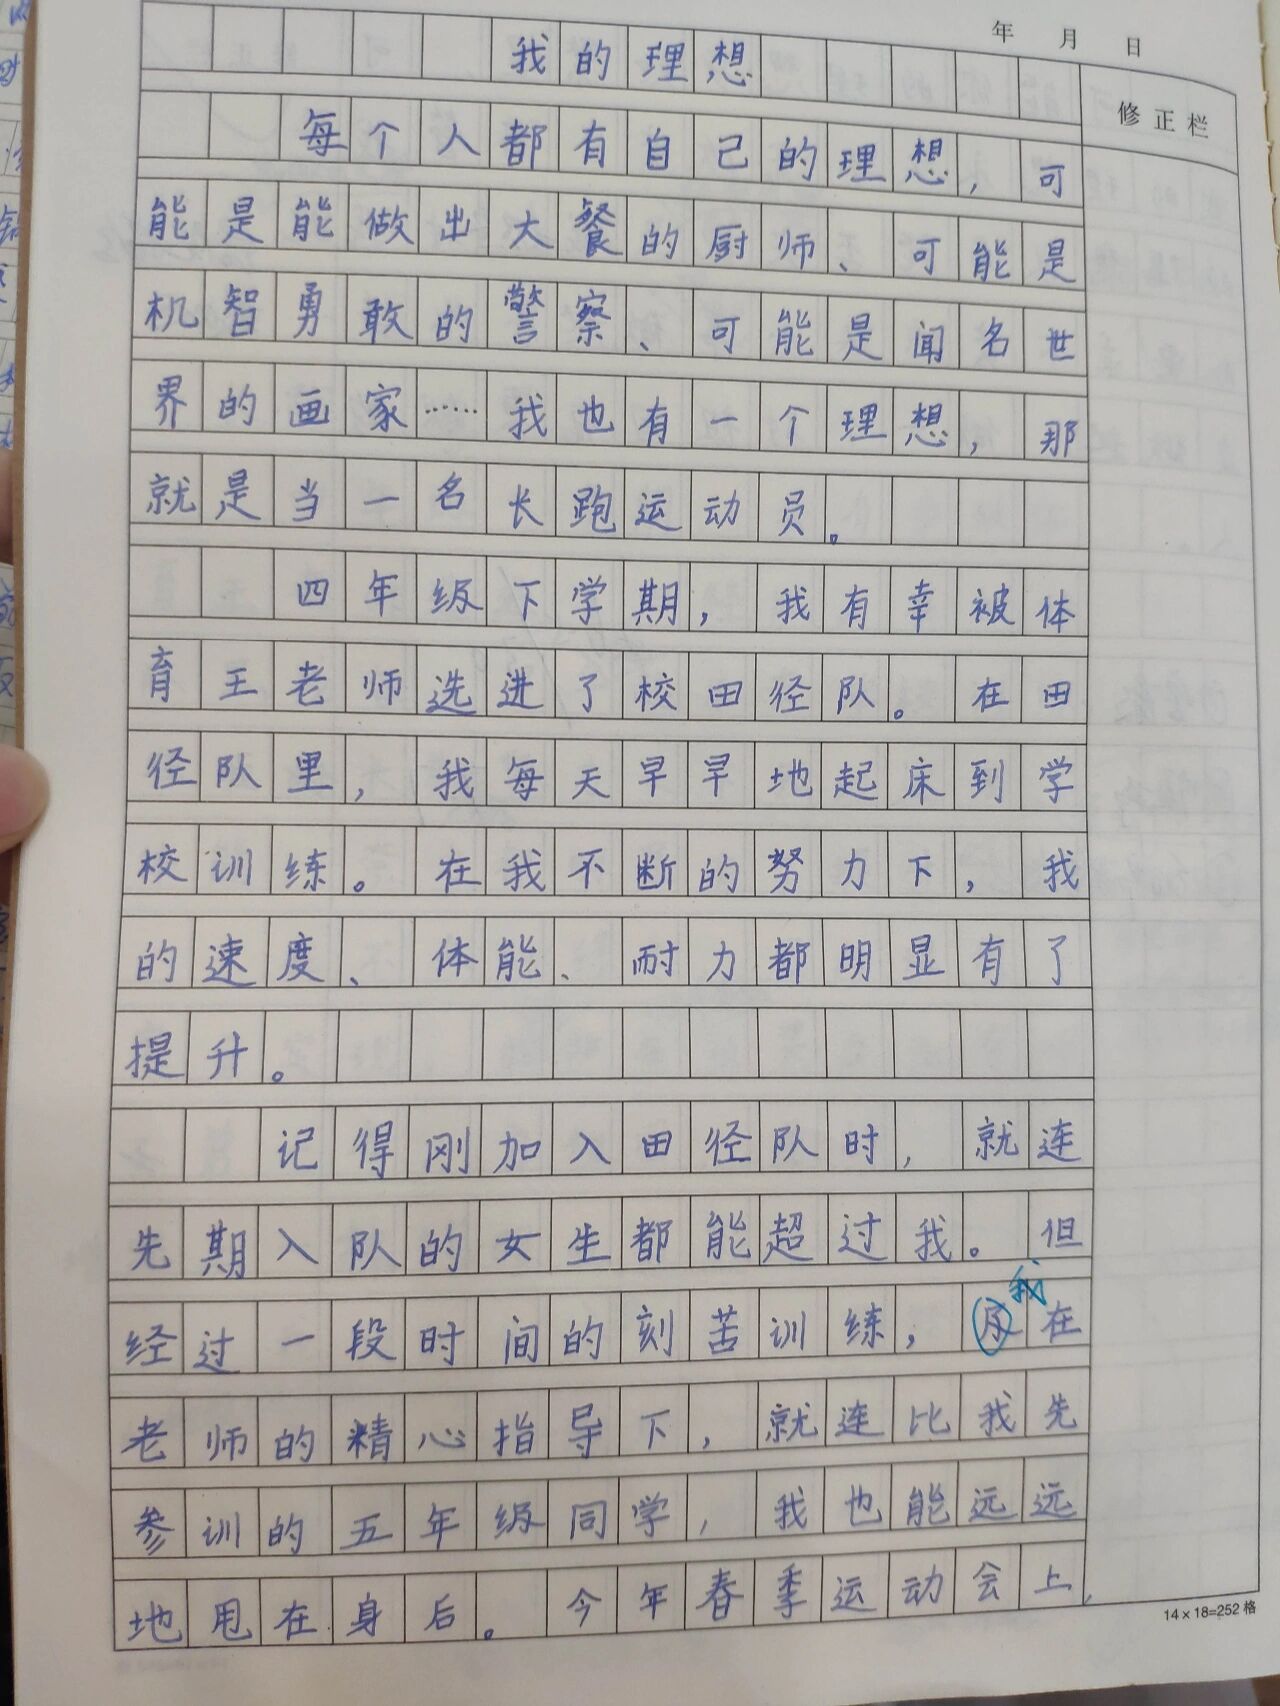 年 月 日
我的理想
修正栏
每个人都有自己的理想，可
能是能做出大餐的厨师、可能是
机智勇敢的警察、可能是闻名世
界的画家……我也有一个理想，那
就是当一名长跑运动员。
四年级下学期，我有幸被体
育王老师选进了校田径队。在田
径队里，我每天早早地起床到学
校训练。在我不断的努力下，我
的速度、体能、耐力都明显有了
提升。
记得刚加入田径队时，就连
先期入队的女生都能超过我。但
我
经过一段时间的刻苦训练，在
老师的精心指导下，就连比我先
参训的五年级同学，我也能远远
地甩在身后。今年春季运动会上，
14×18=252格